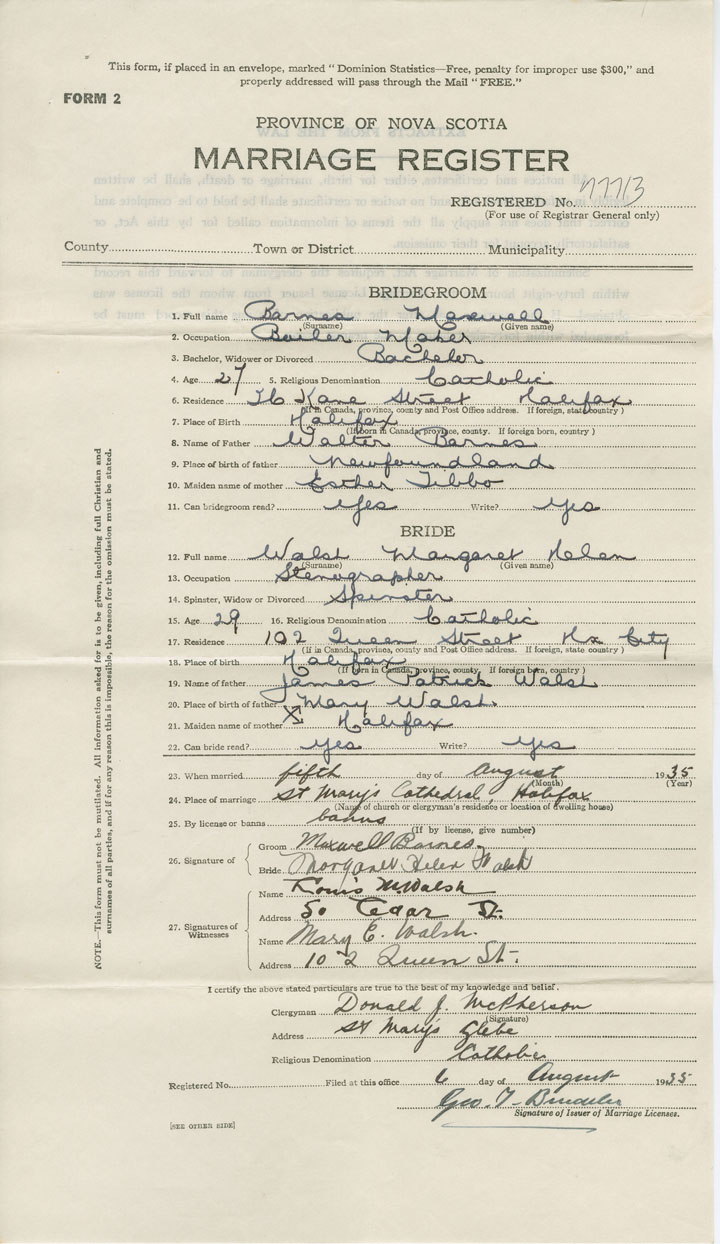 This form, if placed in an envelope, marked " Dominion Statistics—Free, penalty for improper use $300," and
properly addressed will pass through the Mail " FREE."
FORM 2
PROVINCE OF NOVA SCOTIA
MARRIAGE REGISTER
REGISTERED No.
(For use of Registrar General only)
County Town or District Municipality
BRIDEGROOM
1. Full name Barnes Maxwell
(Surname) (Given name)
2. Occupation Boiler Maker
3. Bachelor, Widower or Divorced Bachelor
4. Age 27 5. Religious Denomination Catholic
6. Residence 76 Kane Street Halifax
(If in Canada, province, county and Post Office address. If foreign, state country )
7. Place of Birth Halifax
(If born in Canada, province, county. If foreign born, country )
8. Name of Father Walter Barnes
9. Place of birth of father Newfoundland
10. Maiden name of mother Esther Tibbo
11. Can bridegroom read? Yes Write? Yes
BRIDE
12. Full name Walsh Margaret Helen
(Surname) (Given name)
13. Occupation Stenographer
14. Spinster, Widow or Divorced Spinster
15. Age 29 16. Religious Denomination Catholic
17. Residence 102 Queen Street Hx City
(If in Canada, province, county and Post Office address. If foreign, state country )
18. Place of birth Halifax
(If born in Canada, province, county. If foreign born, country )
19. Name of father James Patrick Walsh
20. Place of birth of father Mary Walsh
21. Maiden name of mother Halifax
22. Can bride read? Yes Write? Yes
23. When married fifth day of August 1935
(Month) (Year)
24. Place of marriage St Mary's Cathedral, Halifax
(Name of church or clergyman's residence or location of dwelling house)
25. By license or banns banns
(If by license, give number)
26. Signature of
Groom Maxwell Barnes
Bride Margaret Helen Walsh
27. Signatures of Witnesses
Name Louis M Walsh
Address 50 Edgar St.
Name Mary E. Walsh.
Address 102 Queen St.
I certify the above stated particulars are true to the best of my knowledge and belief.
Clergyman Donald J. McPherson
(Signature)
Address St Mary's Glebe
Religious Denomination Catholic
Registered No. Filed at this office 6 day of August 1935
Geo. T.
Signature of Issuer of Marriage Licenses.
[SEE OTHER SIDE]
NOTE.—This form must not be mutilated. All information asked for is to be given, including full Christian and
surnames of all parties, and if for any reason this is impossible, the reason for the omission must be stated.